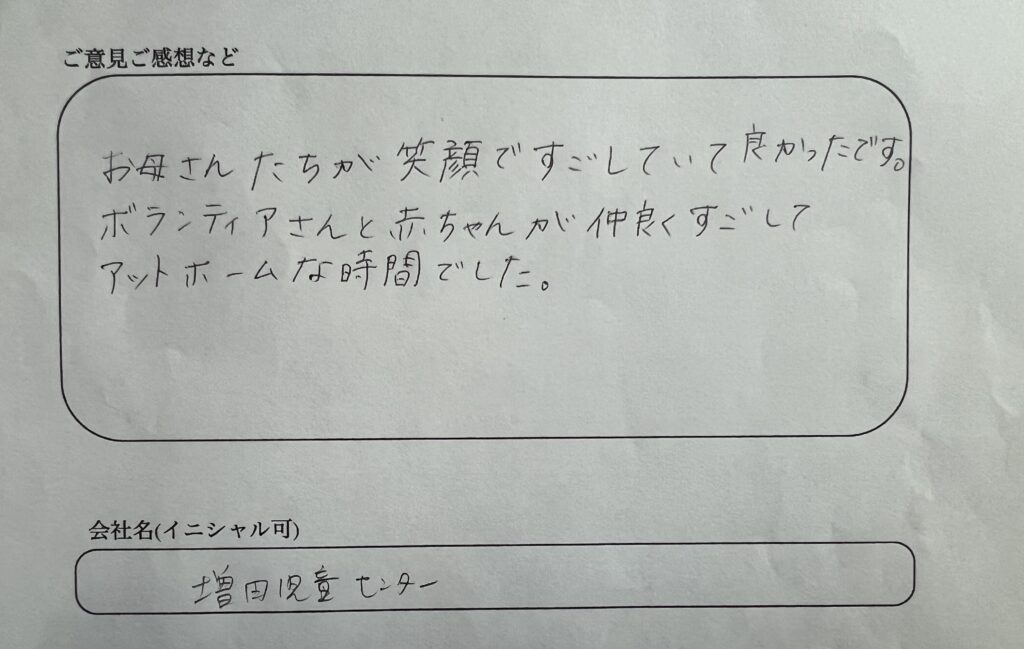 ご意見ご感想など
お母さんたちが笑顔ですごしていて良かったです。
ボランティアさんと赤ちゃんが仲良くすごして
アットホームな時間でした。
会社名(イニシャル可)
増田児童センター